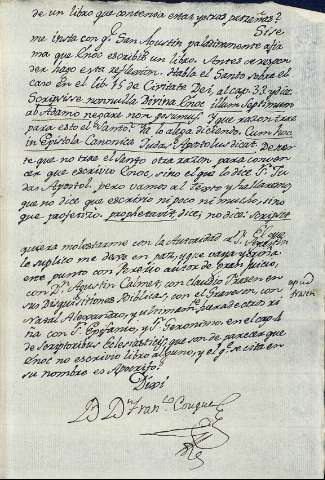 de un libro que contenia estas, y otras pequeñas?
Si se
me insta con q.e San Agustin paladinmente afir
ma que Enoc escribio un libro. Antes de respon
der hago esta reflexion. Habla el Santo sobre el
caso en el lib. 15 de Civitate Dei, al cap. 33 y dice
Scripsisse nonnulla Divina Enoc illum septimum
ab Adamo negare non possumus. Y que razon trae
para esto el Santo? Ya lo alega diciendo: Cum hoc
in Epistola Canonica Judas Apostolus dicat. De suer
te que no trae el Santo otra razon para conven
cer que escrivio Enoc, sino el q.e lo dice S.n Ju
das Apostol. pero vamos al texto y hallaremos
que no dice que escrivio ni poco ni mucho, sino
que profetizó, prophetavit, dice, no dice: scripsit
El que
quiera molestarme con la Autoridad de S.n Agustin
le suplico me deve en paz, y que vaya
este punto con Pererio autor de gran juicio,
con D.n Agustin Calmet, con Claudio Frasen en
sus Disquisitiones Biblicas, con el Graveson, con
Natal Alexandro, y ultimam.te
ña con S.n Epifanio, y S.n Geronimo en el cap. 4
de Scriptoribus Eclesiasticis, que son de parecer que
Enoc no escrivio libro alguno, y el q.e se cita en
su nombre es Apocrifo.
apud
Frasen
Dixi
B. D.n Fran.co Couque